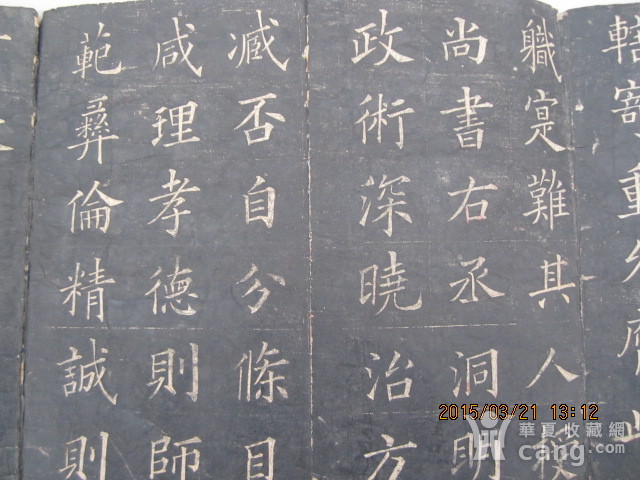 轄寄重允膺此
軄寔難其人授
尚書右丞洞明
政術深曉治方
臧否自分條目
咸理孝德則師
範彝倫精誠則
2015/03/21 13:12
華夏收藏網
cang.com